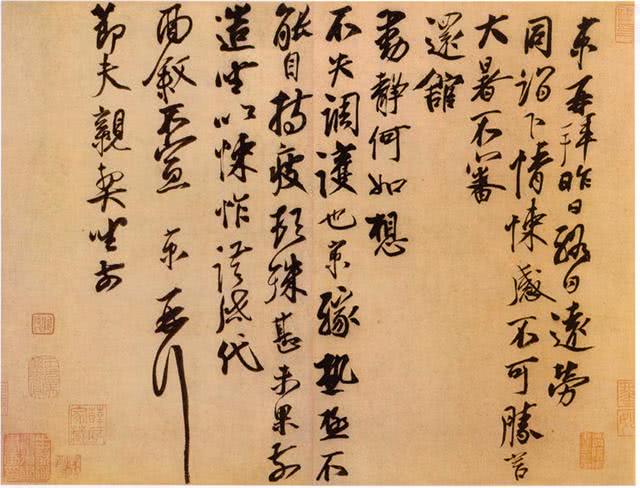 京再拜昨日終日遠勞
同詣下情悚感不可勝言
大暑不審
還舘
動靜何如想
不失調護也京緣熱極不
能自持疲頓殊甚未果前
造坐以悚怍謹啟代
面敘不宣 京再拜
節夫親契坐前